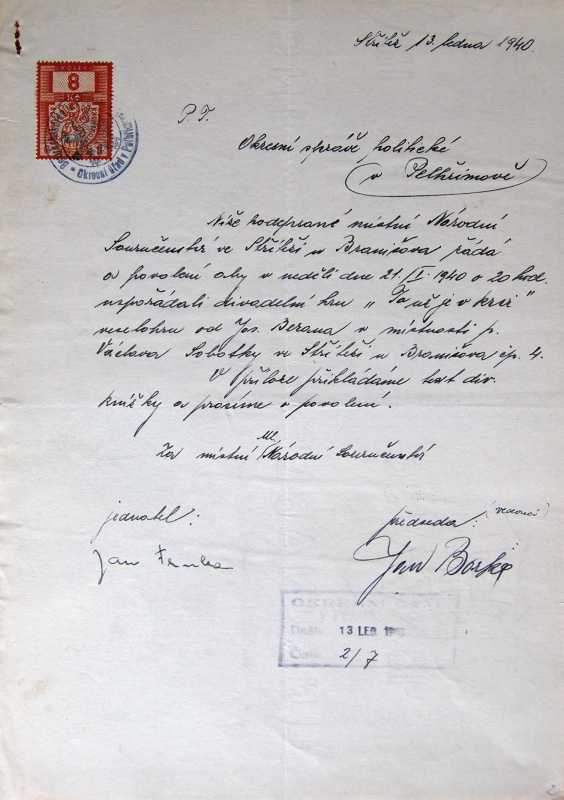 Střítěž 13. ledna 1940.
KOLEK
8
Kč
Okresní úřad v
P. T.
Okresní správě politické
v Pelhřimově
Níže podepsané místní Národní
Souručenství ve Střítěži u Branišova žádá
o povolení aby v neděli dne 21. I. 1940 o 20 hod.
uspořádali divadelní hru „To už je v krvi"
veselohru od Jos. Berana v místnosti p.
Václava Sobotky ve Střítěži u Branišova čp. 4.
V příloze přikládáme text div.
knížky a prosíme o povolení.
Ml.
Za místní Národní Souručenství
jednatel:
předseda: (vedoucí)
Jan
Jan
OKRESNÍ
Došlo 13 LED 1940
Číslo 2/7